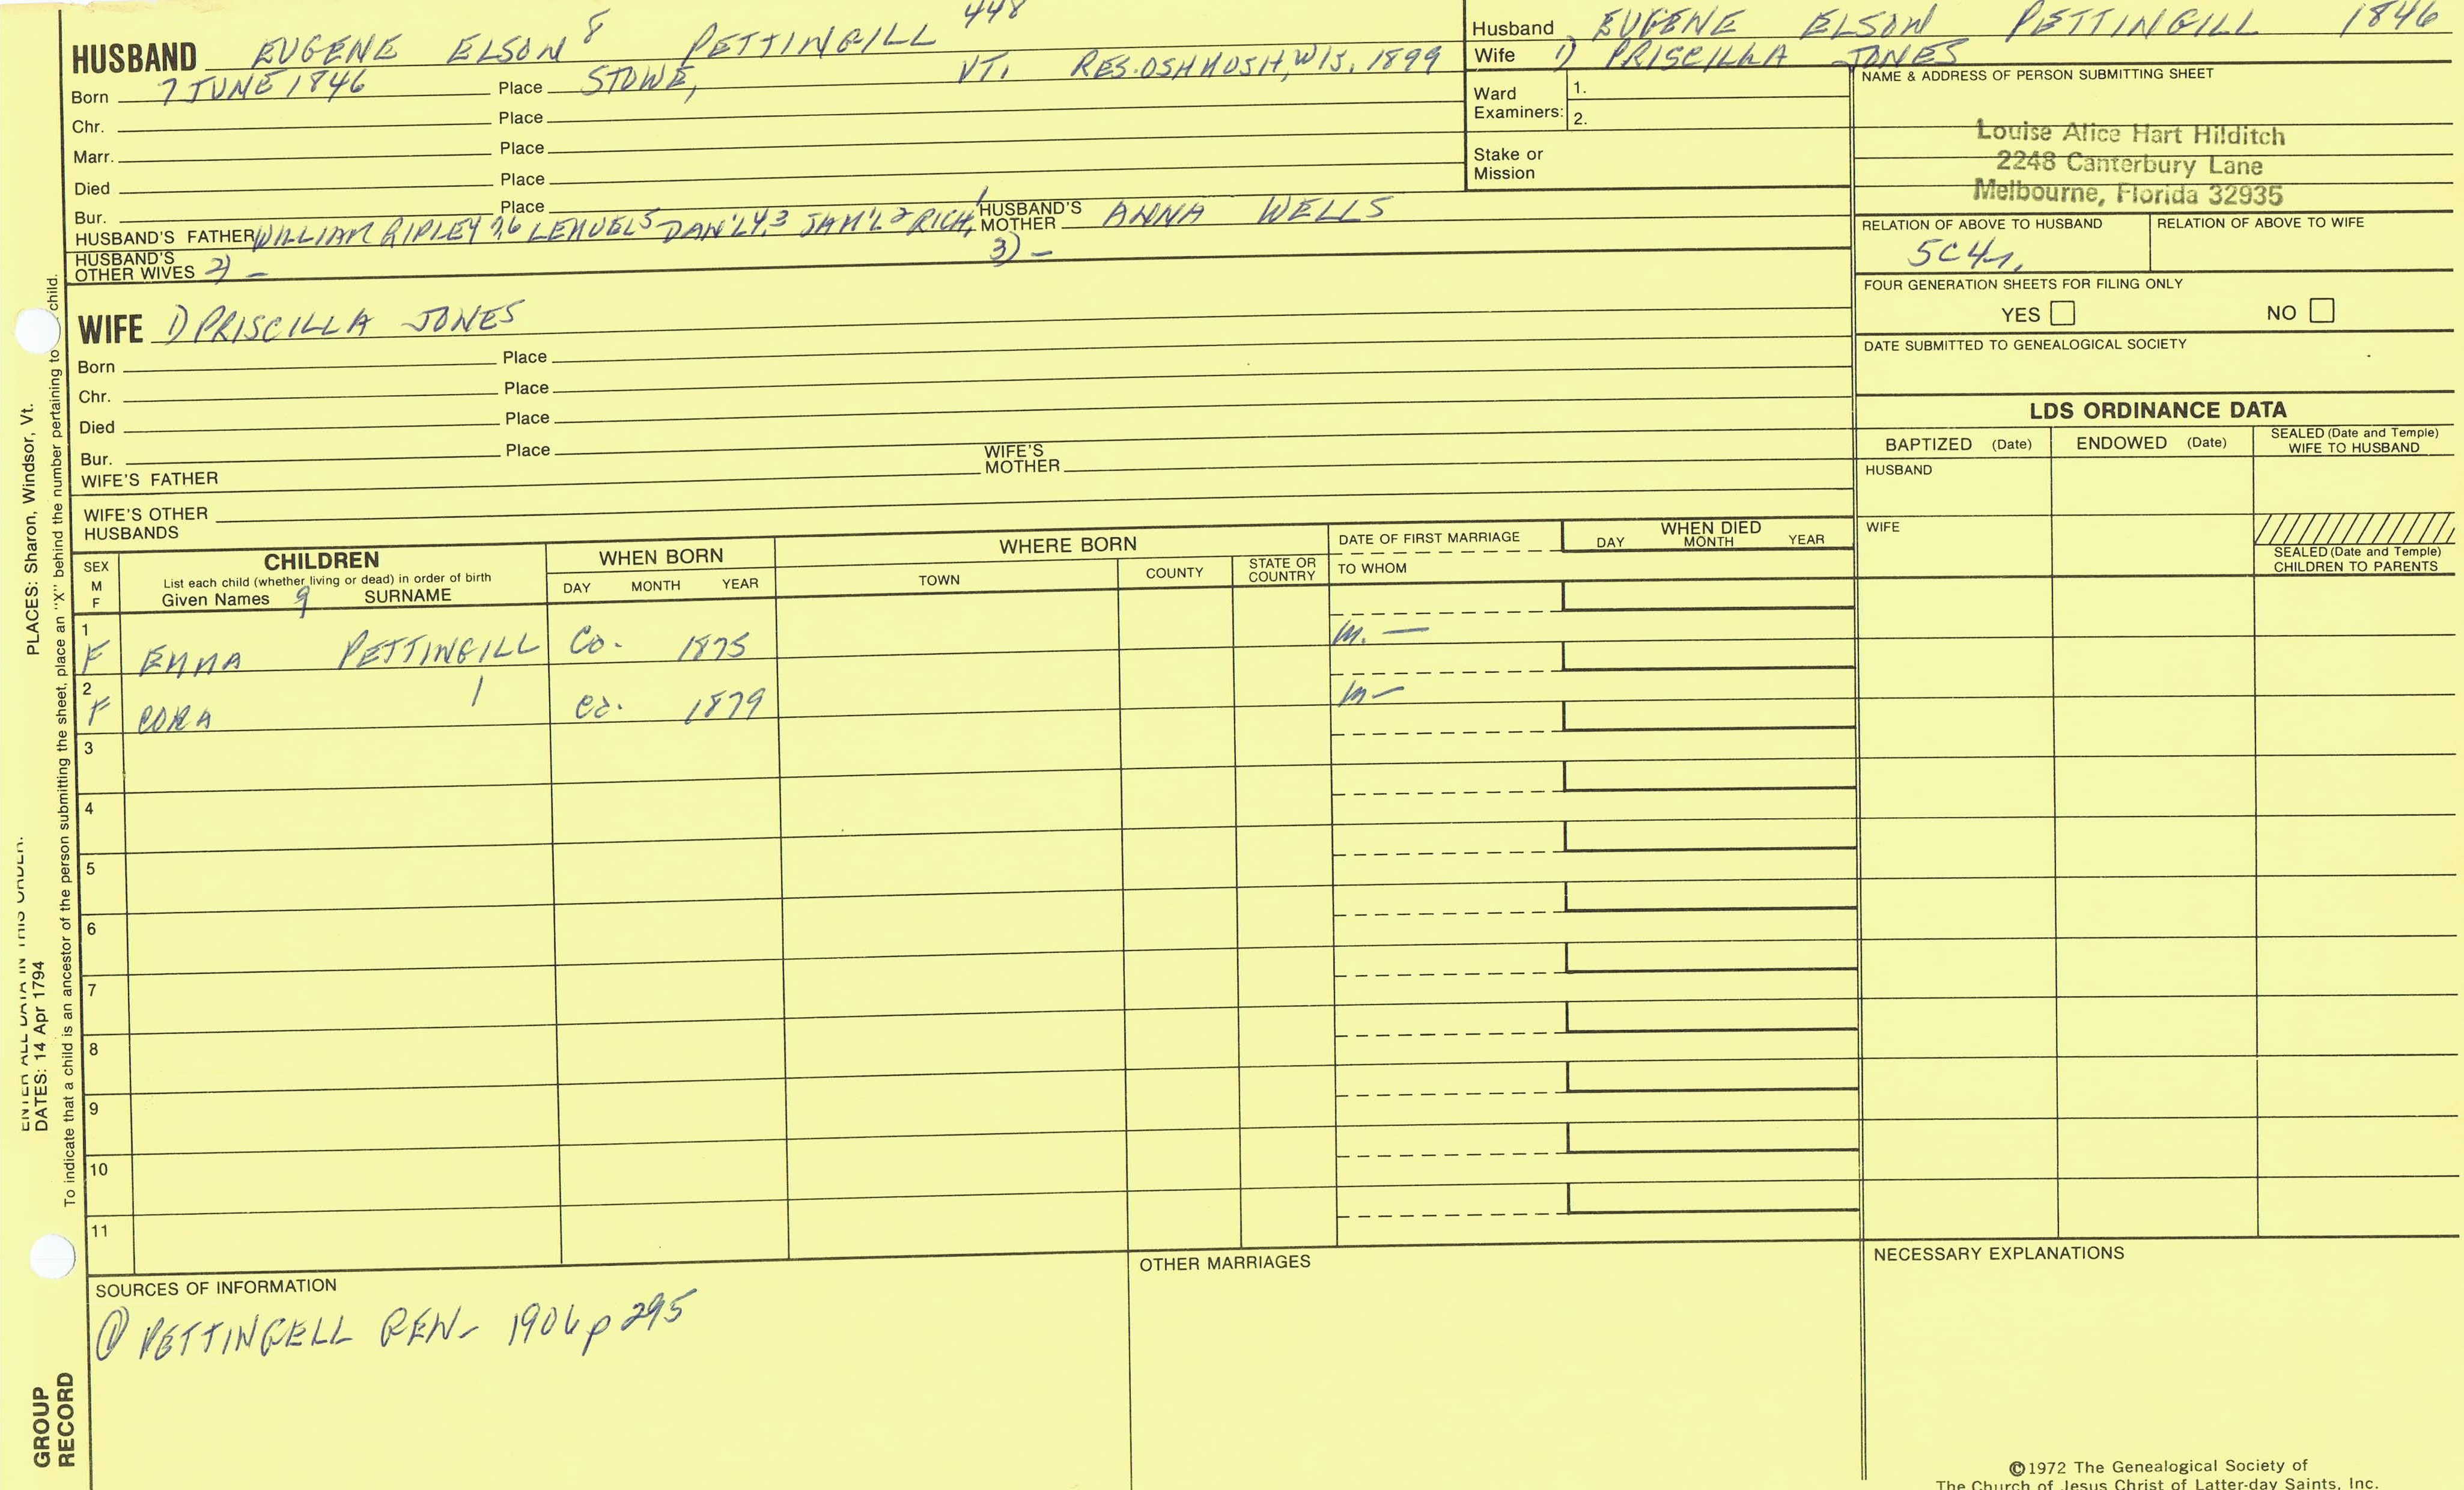 HUSBAND EUGENE ELSON 8 PETTINGILL 448
Born 7 JUNE 1846 Place STOWE, VT. RES. OSHKOSH, WIS. 1899
Chr. Place
Marr. Place
Died Place
Bur. Place
HUSBAND'S FATHER WILLIAM RIPLEY 7,6 LEMUEL 5 DAN'L 4,3 SAM'L 2 RICH, 1 HUSBAND'S MOTHER ANNA WELLS
HUSBAND'S OTHER WIVES 2) – 3) –
WIFE 1) PRISCILLA JONES
Born Place
Chr. Place
Died Place
Bur. Place
WIFE'S FATHER WIFE'S MOTHER
WIFE'S OTHER HUSBANDS
Husband EUGENE ELSON PETTINGILL 1846
Wife 1) PRISCILLA JONES
Ward Examiners: 1.
2.
Stake or Mission
NAME & ADDRESS OF PERSON SUBMITTING SHEET
Louise Alice Hart Hilditch
2248 Canterbury Lane
Melbourne, Florida 32935
RELATION OF ABOVE TO HUSBAND RELATION OF ABOVE TO WIFE
5C4r.
FOUR GENERATION SHEETS FOR FILING ONLY
YES NO
DATE SUBMITTED TO GENEALOGICAL SOCIETY
LDS ORDINANCE DATA
BAPTIZED (Date) ENDOWED (Date) SEALED (Date and Temple) WIFE TO HUSBAND
HUSBAND
WIFE
SEALED (Date and Temple) CHILDREN TO PARENTS
SEX M F
CHILDREN
List each child (whether living or dead) in order of birth
Given Names 9 SURNAME
WHEN BORN
DAY MONTH YEAR
WHERE BORN
TOWN COUNTY STATE OR COUNTRY
DATE OF FIRST MARRIAGE
TO WHOM
WHEN DIED
DAY MONTH YEAR
1 F EMMA PETTINGILL Ca. 1875 m. —
2 F CORA Ca. 1879 m —
3
4
5
6
7
8
9
10
11
SOURCES OF INFORMATION
① PETTINGELL GEN- 1906 p 295
OTHER MARRIAGES
NECESSARY EXPLANATIONS
©1972 The Genealogical Society of
The Church of Jesus Christ of Latter-day Saints, Inc.
ENTER ALL DATA IN THIS ORDER:
DATES: 14 Apr 1794 PLACES: Sharon, Windsor, Vt.
To indicate that a child is an ancestor of the person submitting the sheet, place an "X" behind the number pertaining to child.
GROUP
RECORD